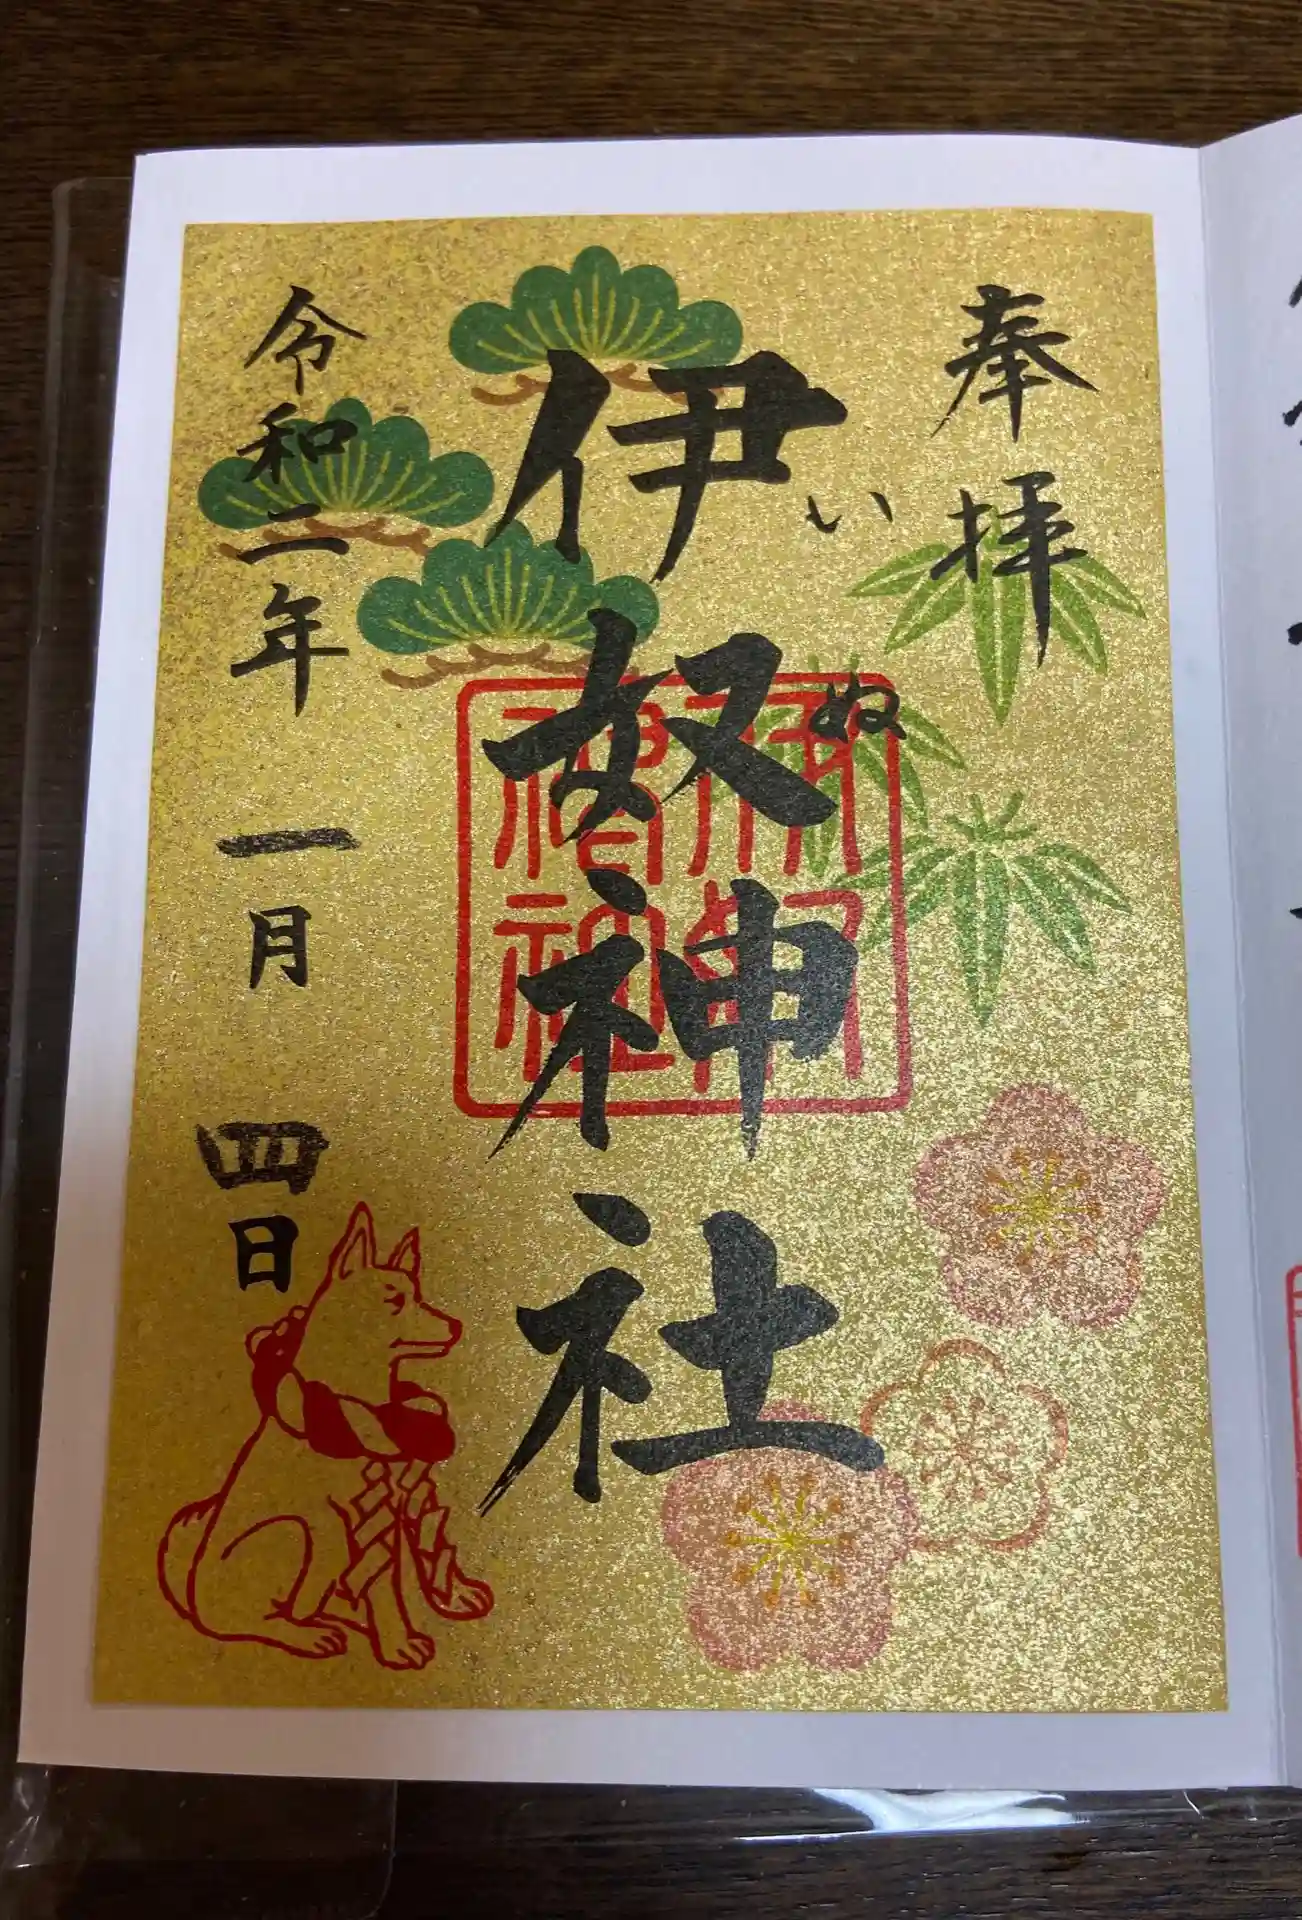 奉拝
伊奴神社
いぬ
令和二年一月四日